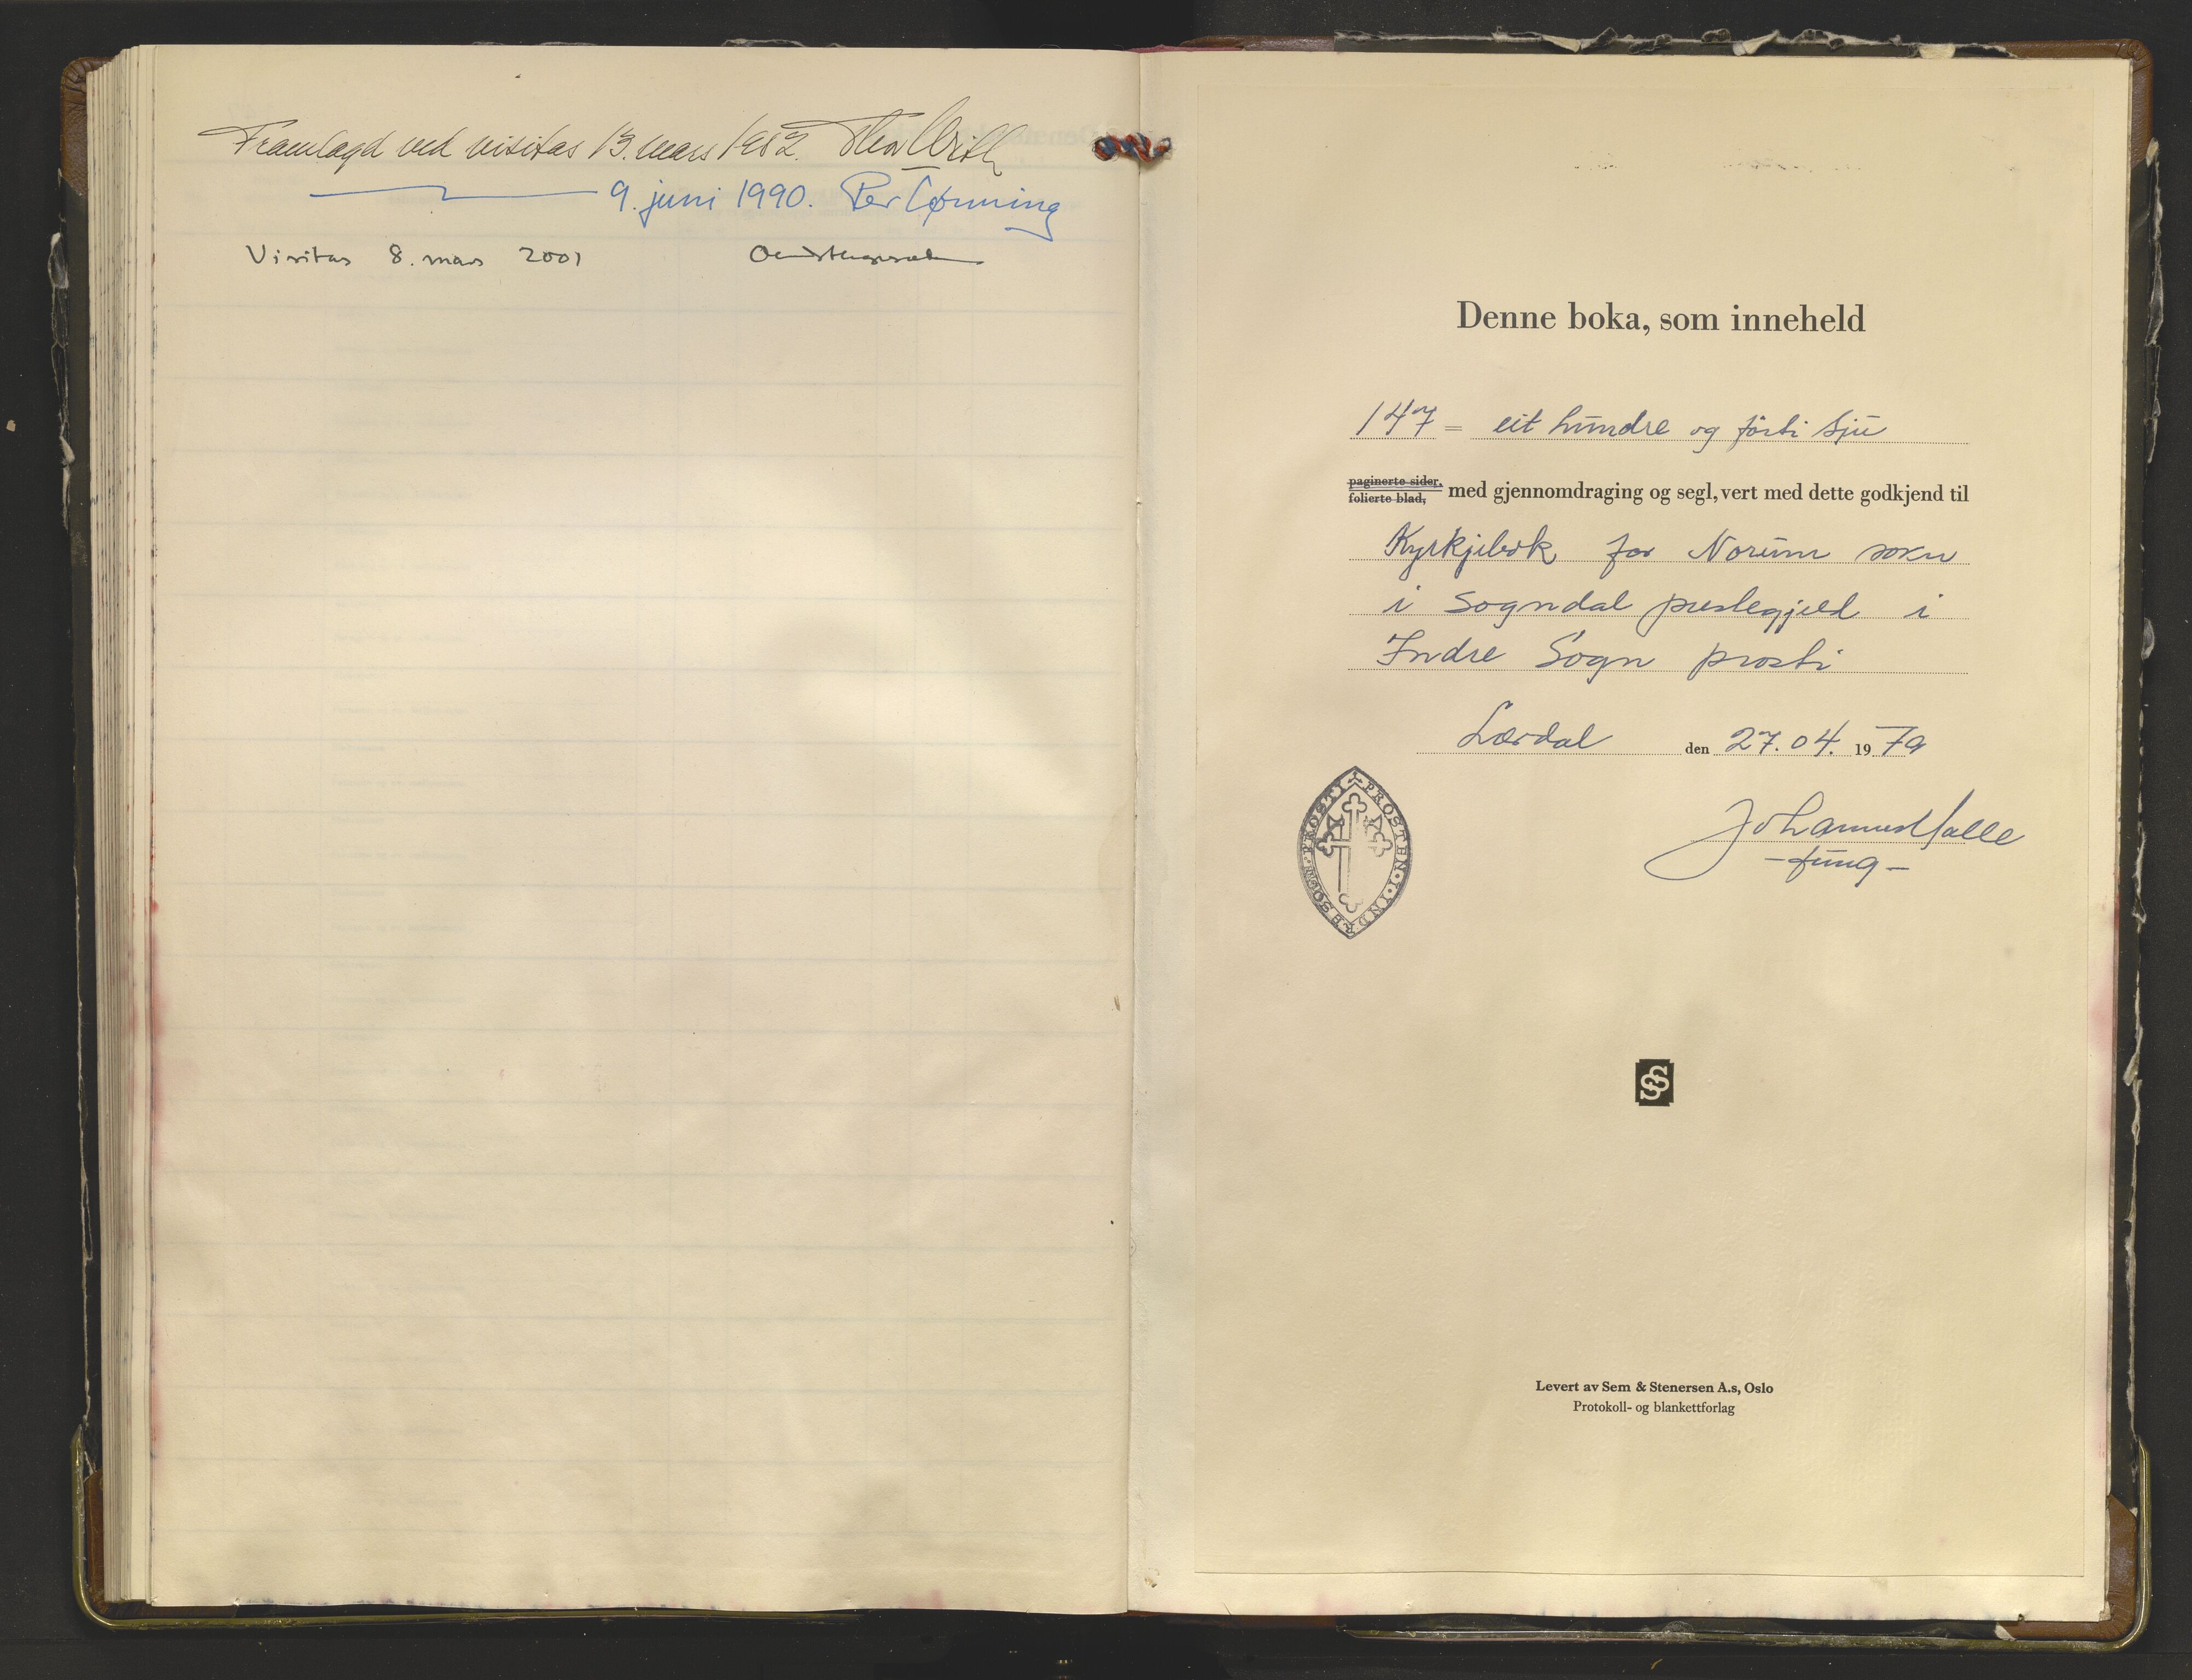 Framlagd ved visitas 13. mars 1982. Thor With
9. juni 1990. Per Lønning
Visitas 8. mars 2001
Denne boka, som inneheld
147 = eit hundre og førti sju
paginerte sider,
folierte blad, med gjennomdraging og segl, vert med dette godkjend til
Kyrkjebok for Norum sokn
i Sogndal prestegjeld i
Indre Sogn prosti
Lærdal den 27.04. 1979
Johannes
- fung -
PROSTEN I INDRE SOGN PROSTI
SS
Levert av Sem & Stenersen A.s, Oslo
Protokoll- og blankettforlag